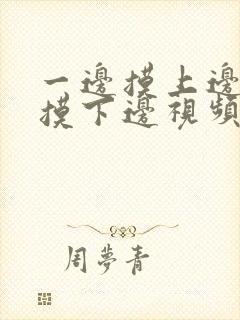 一邊摸上邊
摸下邊視頻
周夢青